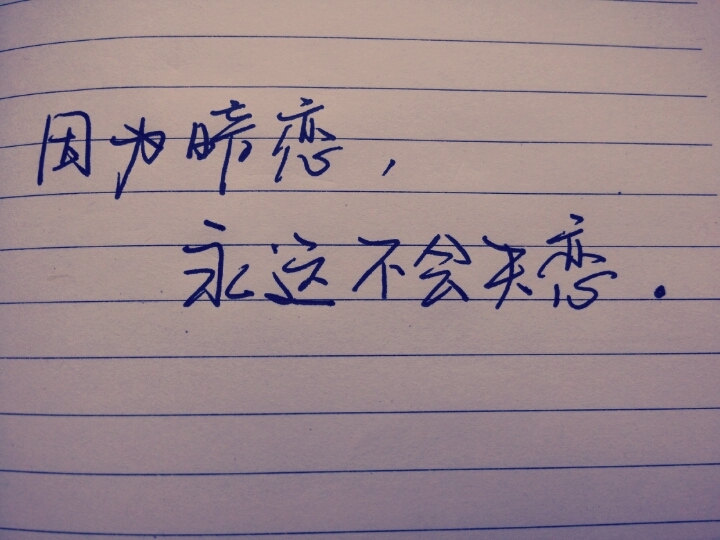 因为暗恋，
永远不会失恋.